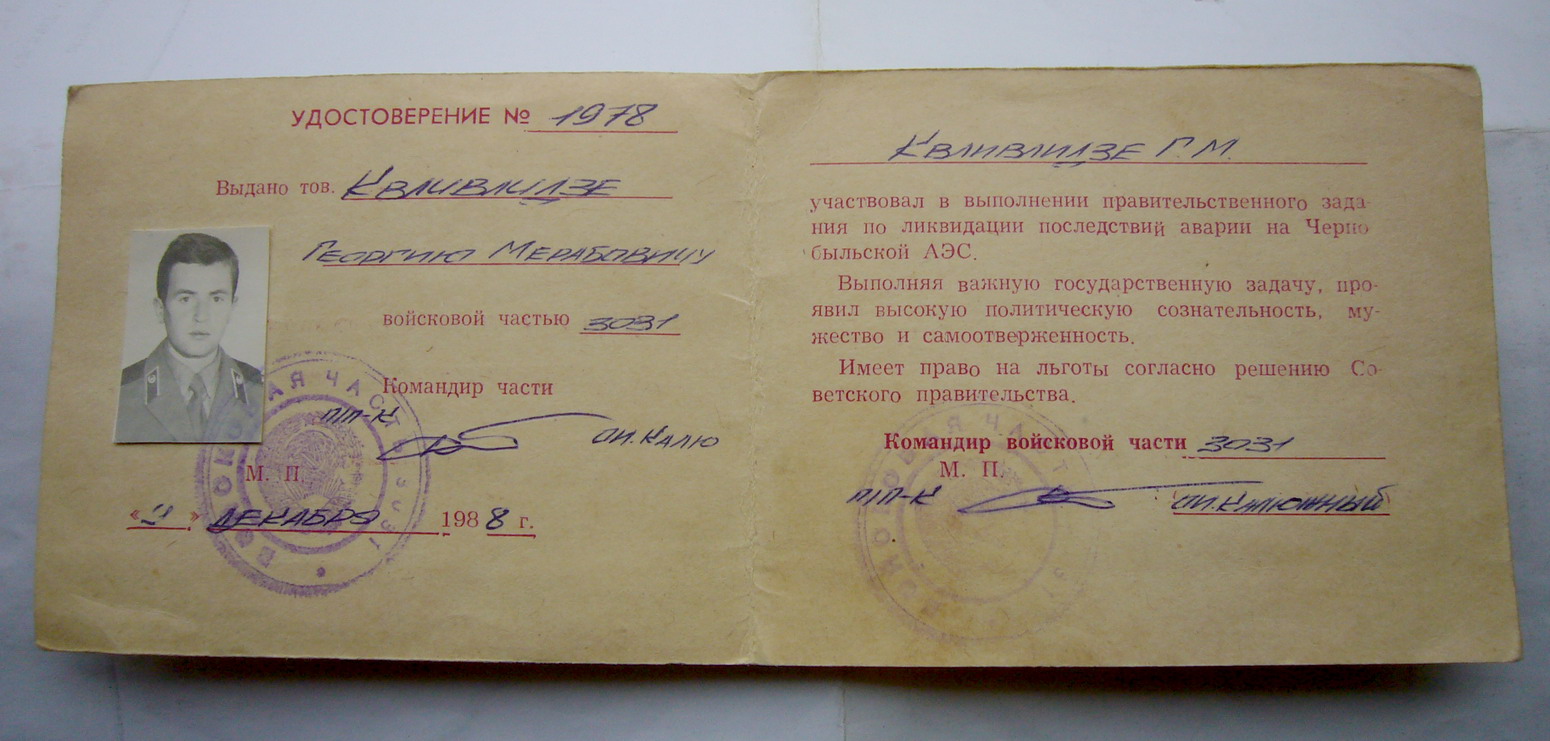 УДОСТОВЕРЕНИЕ № 1978
Выдано тов. Квливлидзе
Георгию Мерабовичу
войсковой частью 3031
Командир части
п/п-к
М. П.
декабря 1988 г.
ВОЙСКОВАЯ ЧАСТЬ 3031
Квливлидзе Г. М.
участвовал в выполнении правительственного зада-
ния по ликвидации последствий аварии на Черно
быльской АЭС.
Выполняя важную государственную задачу, про-
явил высокую политическую сознательность, му-
жество и самоотверженность.
Имеет право на льготы согласно решению Со-
ветского правительства.
Командир войсковой части 3031
М. П.
п/п-к Калюжный